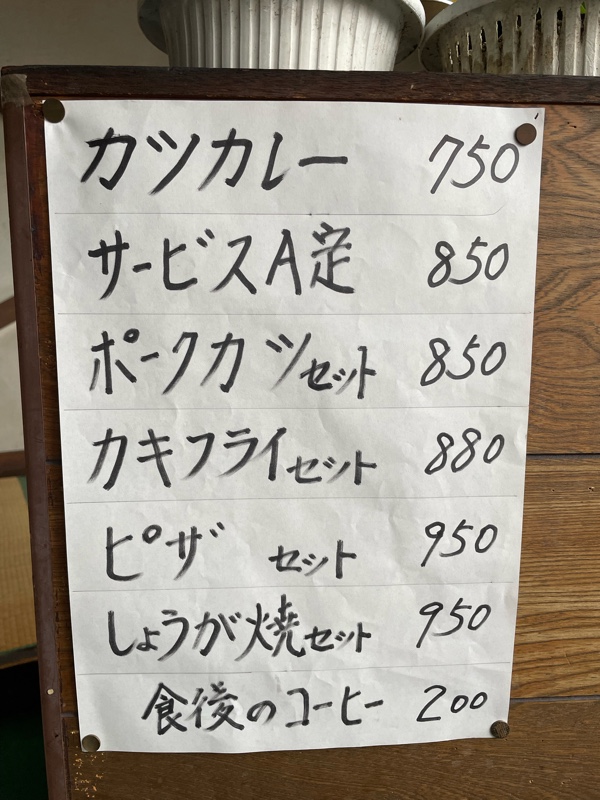 カツカレー 750
サービスA定 850
ポークカツセット 850
カキフライセット 880
ピザ セット 950
しょうが焼セット 950
食後のコーヒー 200